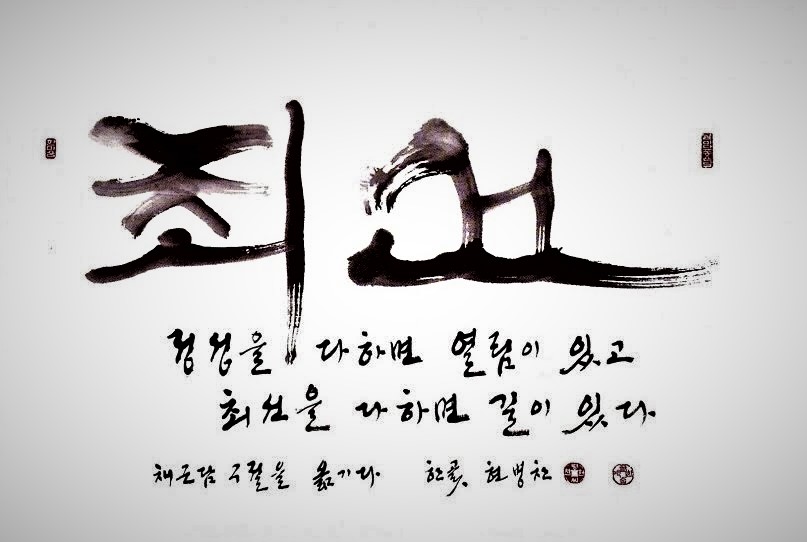 최선
정성을 다하면 열림이 있고
최선을 다하면 길이 있다.
채근담 구절을 옮기다 한곬 현병찬